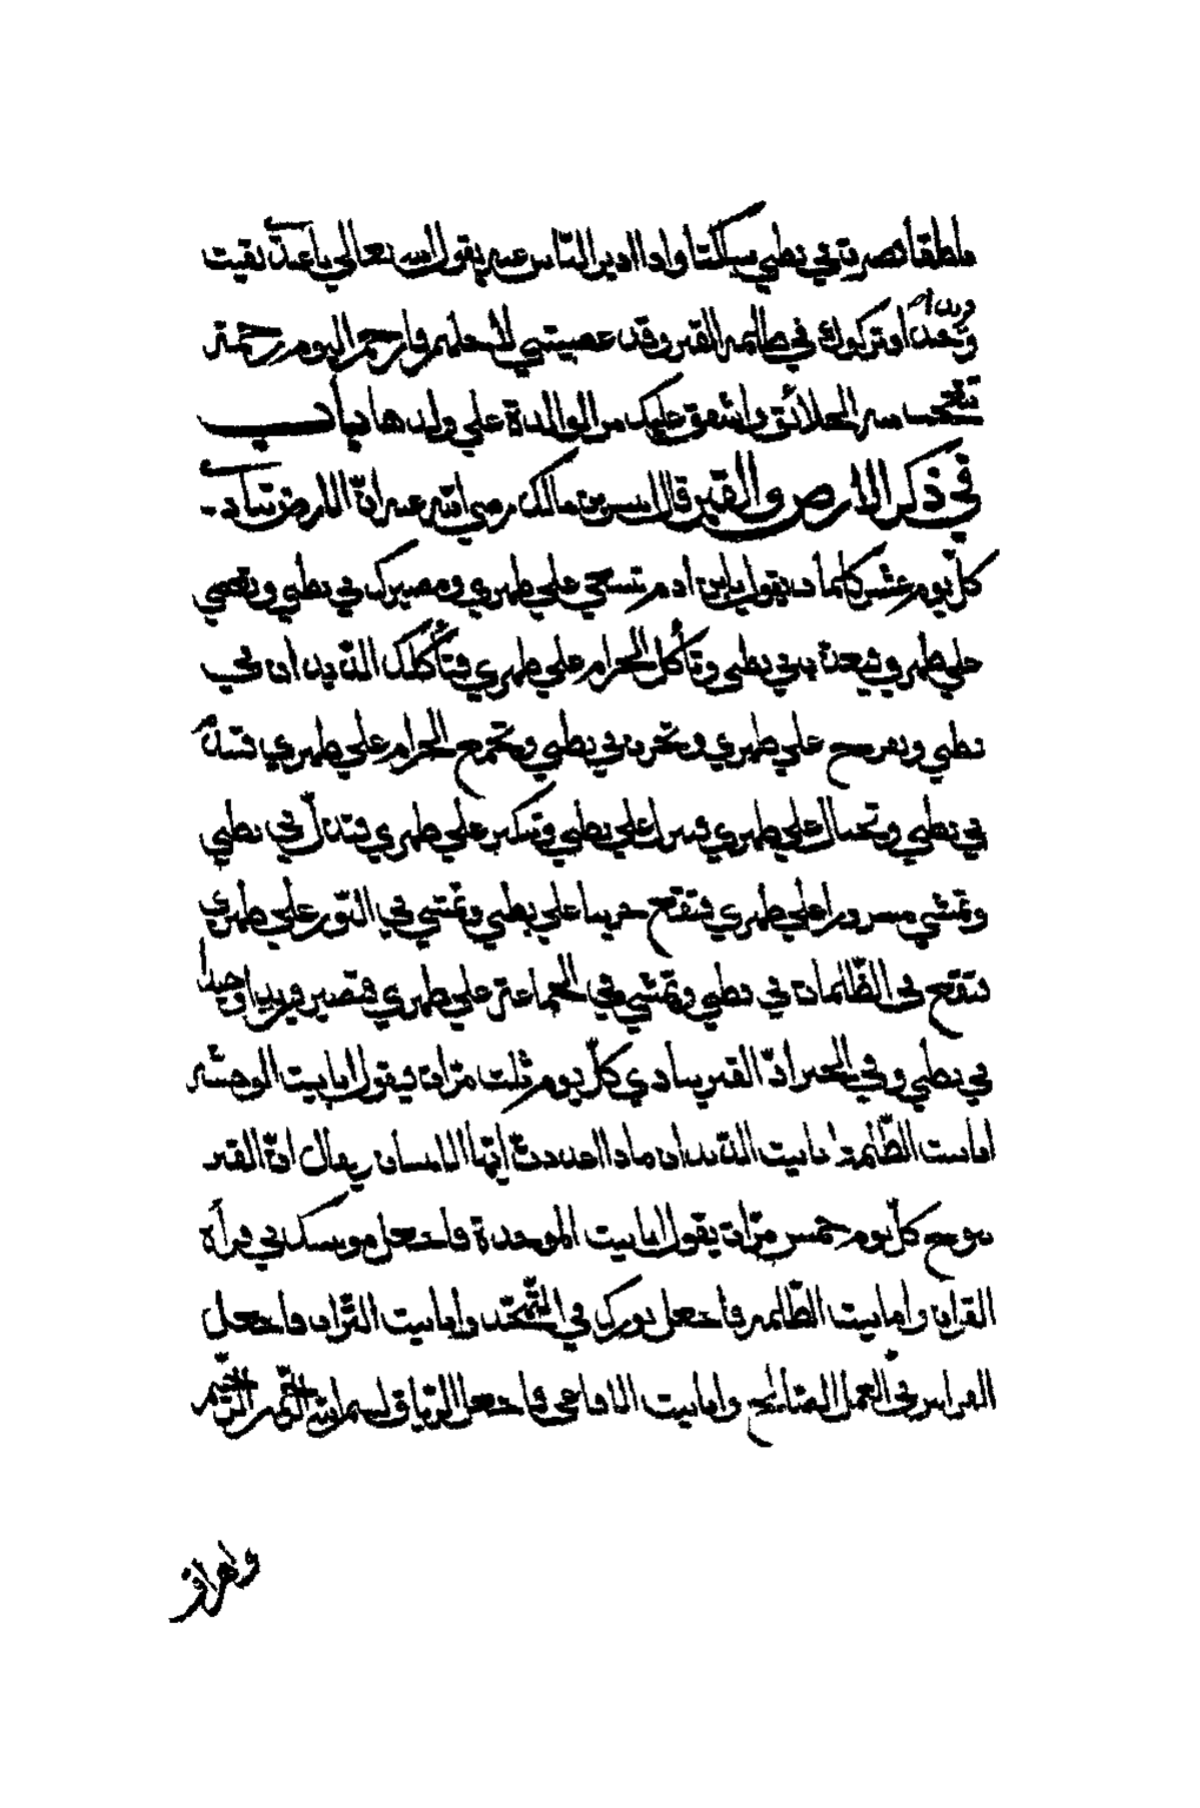 ناطقا فصرت في بطني ساكتا واذا ادبر الناس عنه يقول الله تعالى يا عبدي بقيت
فريدا
وحيدا وتركوك في ظلمة القبر وقد عصيتني لأجلهم فارحم اليوم رحمة
تتعجب منه الخلائق واشفق عليك من الوالدة على ولدها باب
في ذكر الارض والقبر قال انس بن مالك رضي الله عنه انّ الارض تنادي
كلّ يوم عشر كلمات يقول يا ابن آدم تسعى على ظهري ومصيرك في بطني وتعصي
على ظهري وتعذب في بطني وتأكل الحرام على ظهري فتأكلك الديدان في
بطني وتفرح على ظهري وتحزن في بطني وتجمع الحرام على ظهري فتذل
في بطني وتحتال على ظهري على بطني وتتكبر على ظهري فتذلّ في بطني
وتمشي مسرورا على ظهري فتقع حزينا على بطني وتمشي في النّور على ظهري
فتقع في الظّلمات في بطني وتمشي في الجماعة على ظهري فتصير فريدا وحيدا
في بطني وفي الخبر انّ القبر ينادي كلّ يوم ثلث مرّات فيقول انا بيت الوحشة
انا بيت الظّلمة انا بيت الدّيدان ماذا اعددت أيّها الانسان يقال انّ القبر
كلّ يوم خمس مرّات يقول انا بيت الوحدة فاجعل مونسك لي قرأة
القرآن وانا بيت الظّلمة فاجعل نورك في التّهجّد وانا بيت التّراب فاجعل
الفراش في العمل الصّالح وانا بيت الافاعي فاجعل التّرياق بسم الله الرّحمن الرّحيم